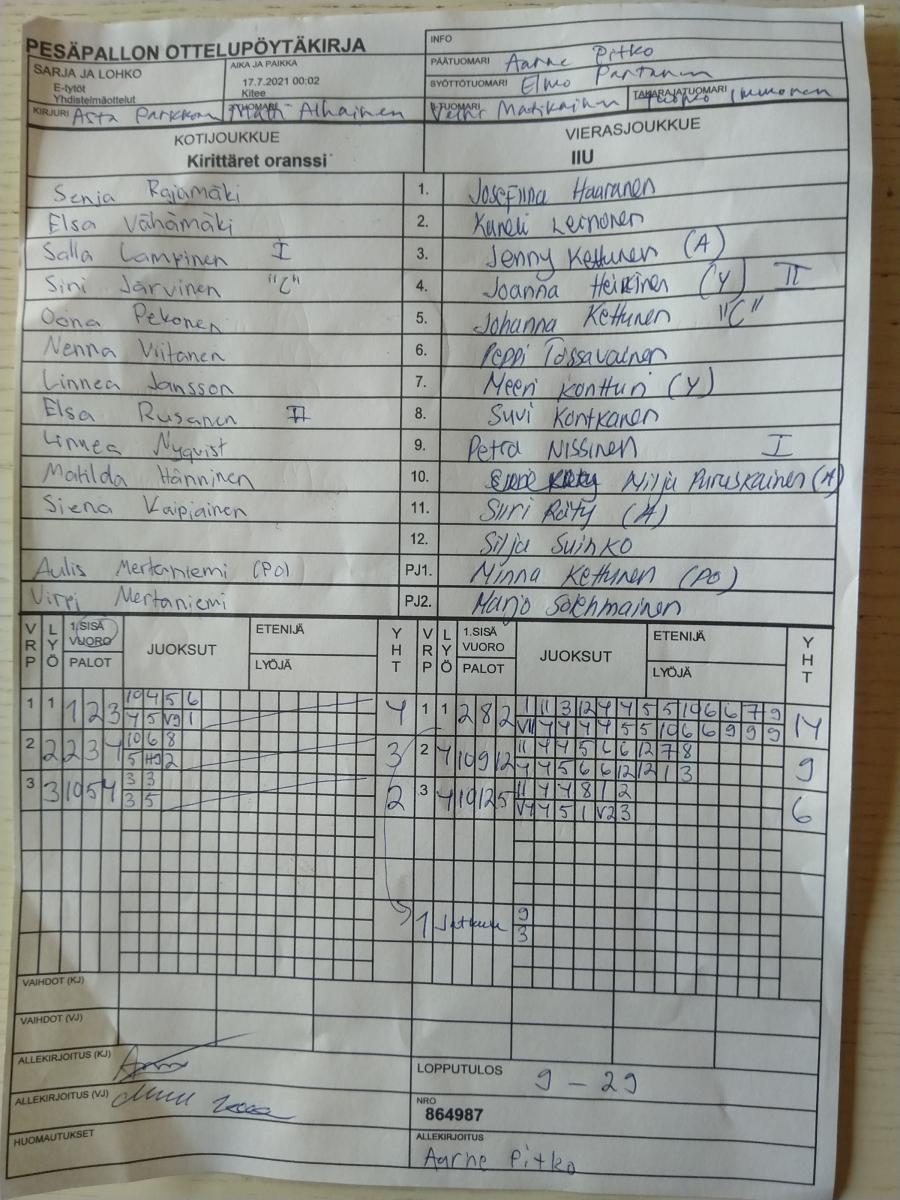 PESÄPALLON OTTELUPÖYTÄKIRJA
INFO
SARJA JA LOHKO
E-tytöt
Yhdistelmäottelut
AIKA JA PAIKKA
17.7.2021 00:02
Kitee
PÄÄTUOMARI Aarne Pitko
SYÖTTÖTUOMARI Elmo Partanen
KIRJURI Asta Parkkonen
2-TUOMARI Matti Alhainen
3-TUOMARI Veini Matikainen
TAKARAJATUOMARI Immonen
KOTIJOUKKUE
Kirittäret oranssi
VIERASJOUKKUE
IIU
Senja Rajamäki 1. Josefiina Haaranen
Elsa Vähämäki 2. Kaneli Leinonen
Salla Lampinen I 3. Jenny Kettunen (A)
Sini Järvinen "C" 4. Joanna Heikkinen (Y) II
Oona Pekonen 5. Johanna Kettunen "C"
Nenna Viitanen 6. Peppi Tossavainen
Linnea Jansson 7. Meeri Kontturi (Y)
Elsa Rusanen II 8. Suvi Kontkanen
Linnea Nyqvist 9. Petra Nissinen I
Matilda Hänninen 10. Nilja Puruskainen (A)
Siena Kaipiainen 11. Siiri Räty (A)
12. Silja Suihko
Aulis Mertaniemi (PO) PJ1. Minna Kettunen (PO)
Virpi Mertaniemi PJ2. Marjo Solehmainen
VRP LYÖ 1.SISÄ VUORO PALOT JUOKSUT ETENIJÄ LYÖJÄ YHT VRP LYÖ 1.SISÄ VUORO PALOT JUOKSUT ETENIJÄ LYÖJÄ YHT
1 1 1 2 3 10 4 5 6 4 1 1 2 8 2 1 11 3 12 4 4 5 5 10 6 6 7 9 14
4 5 V9 1 V11 4 4 4 4 5 5 10 6 6 9 9 9
2 2 2 3 4 10 6 8 3 2 4 10 9 12 11 4 4 5 6 6 12 7 8 9
5 H9 2 4 4 5 6 6 12 12 1 3
3 3 10 5 4 3 3 2 3 4 10 12 5 11 4 4 8 1 2 6
3 5 V4 4 5 1 V2 3
1 Jatkuu 9
3
VAIHDOT (KJ)
VAIHDOT (VJ)
ALLEKIRJOITUS (KJ)
LOPPUTULOS 9 - 29
ALLEKIRJOITUS (VJ)
NRO
864987
HUOMAUTUKSET
ALLEKIRJOITUS
Aarne Pitko